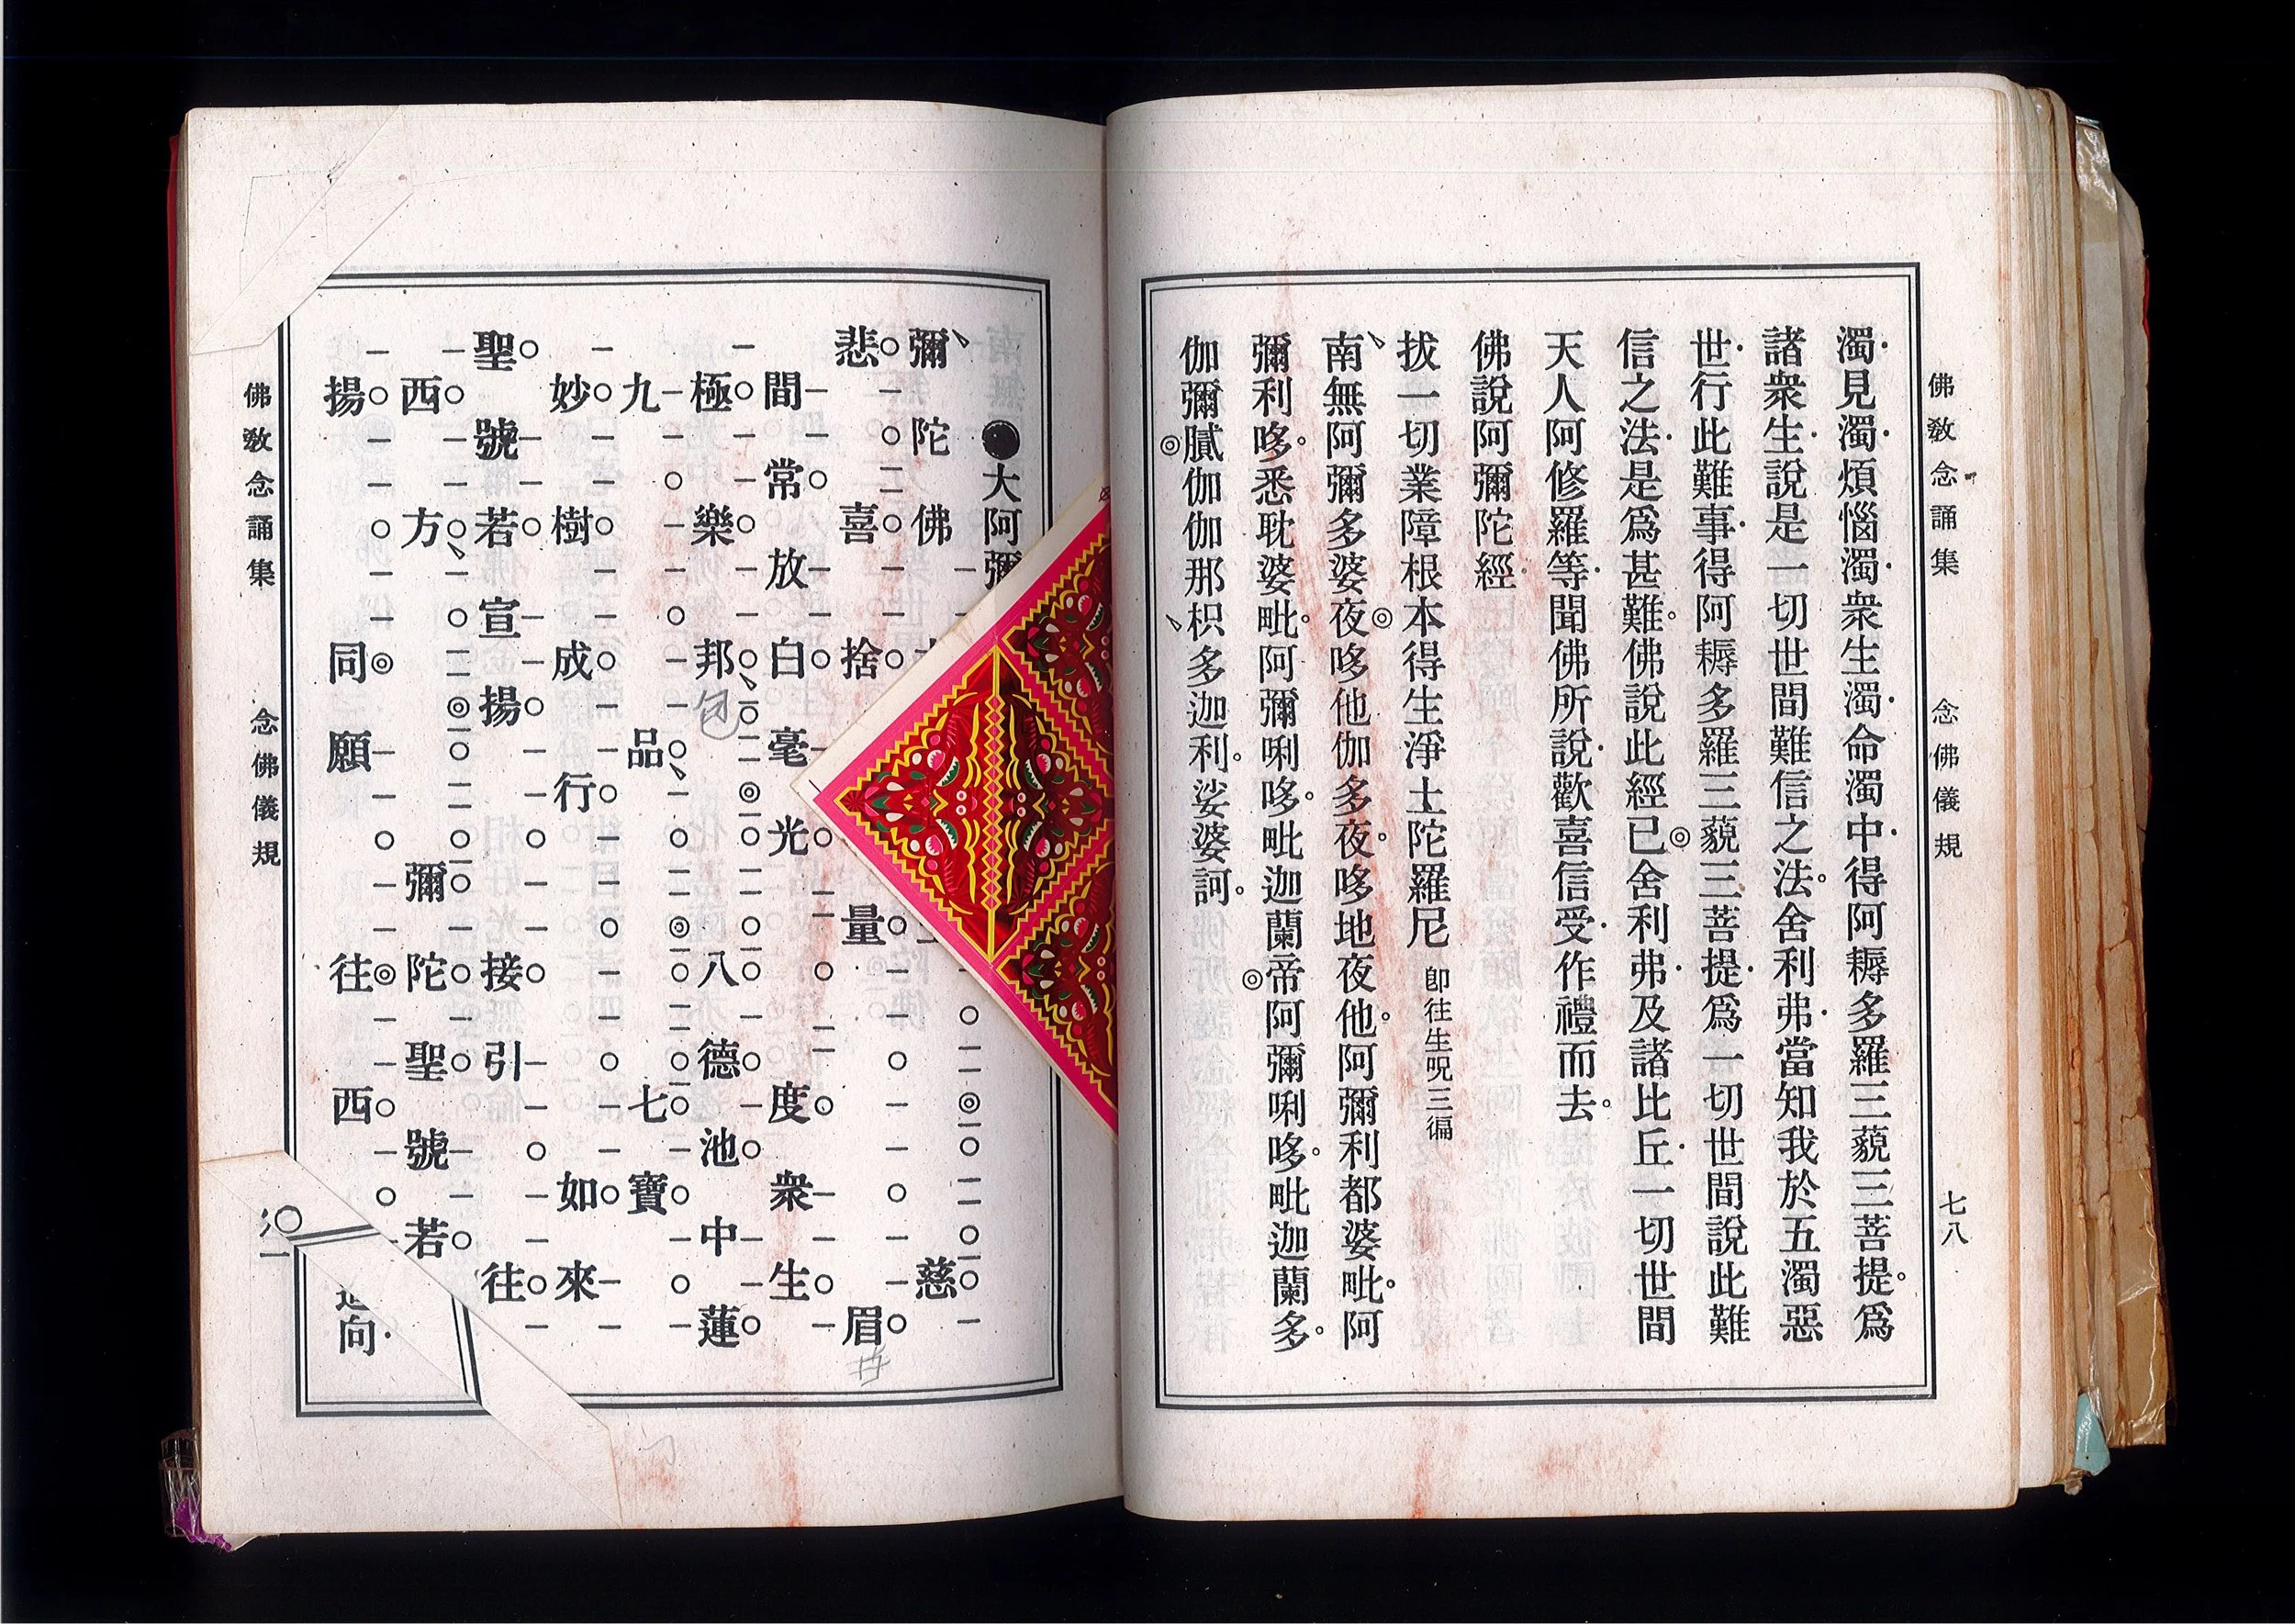 佛敎念誦集　念佛儀規　七八
濁·見濁·煩惱濁·衆生濁·命濁中·得阿耨多羅三藐三菩提。爲
諸衆生·說是一切世間難信之法。舍利弗·當知我於五濁惡
世·行此難事·得阿耨多羅三藐三菩提·爲一切世間說此難
信之法·是爲甚難。佛說此經已◎舍利弗·及諸比丘·一切世間
天人阿修羅等·聞佛所說·歡喜信受·作禮而去。
佛說阿彌陀經
拔一切業障根本得生淨土陀羅尼 卽往生呪三徧
南無阿彌多婆夜◎哆他伽多夜。哆地夜他。阿彌利都婆毗。阿
彌利哆。悉耽婆毗。阿彌唎哆。毗迦蘭帝◎阿彌唎哆。毗迦蘭多。
伽彌膩◎伽伽那枳多迦利。娑婆訶。
●大阿彌
彌陀佛　慈
悲喜捨量眉
間常放白毫光度衆生
極樂邦八德池中蓮
九品七寶
妙樹成行如來
聖號若宣揚接引往
西方彌陀聖號若
揚同願往西
向·
佛敎念誦集　念佛儀規